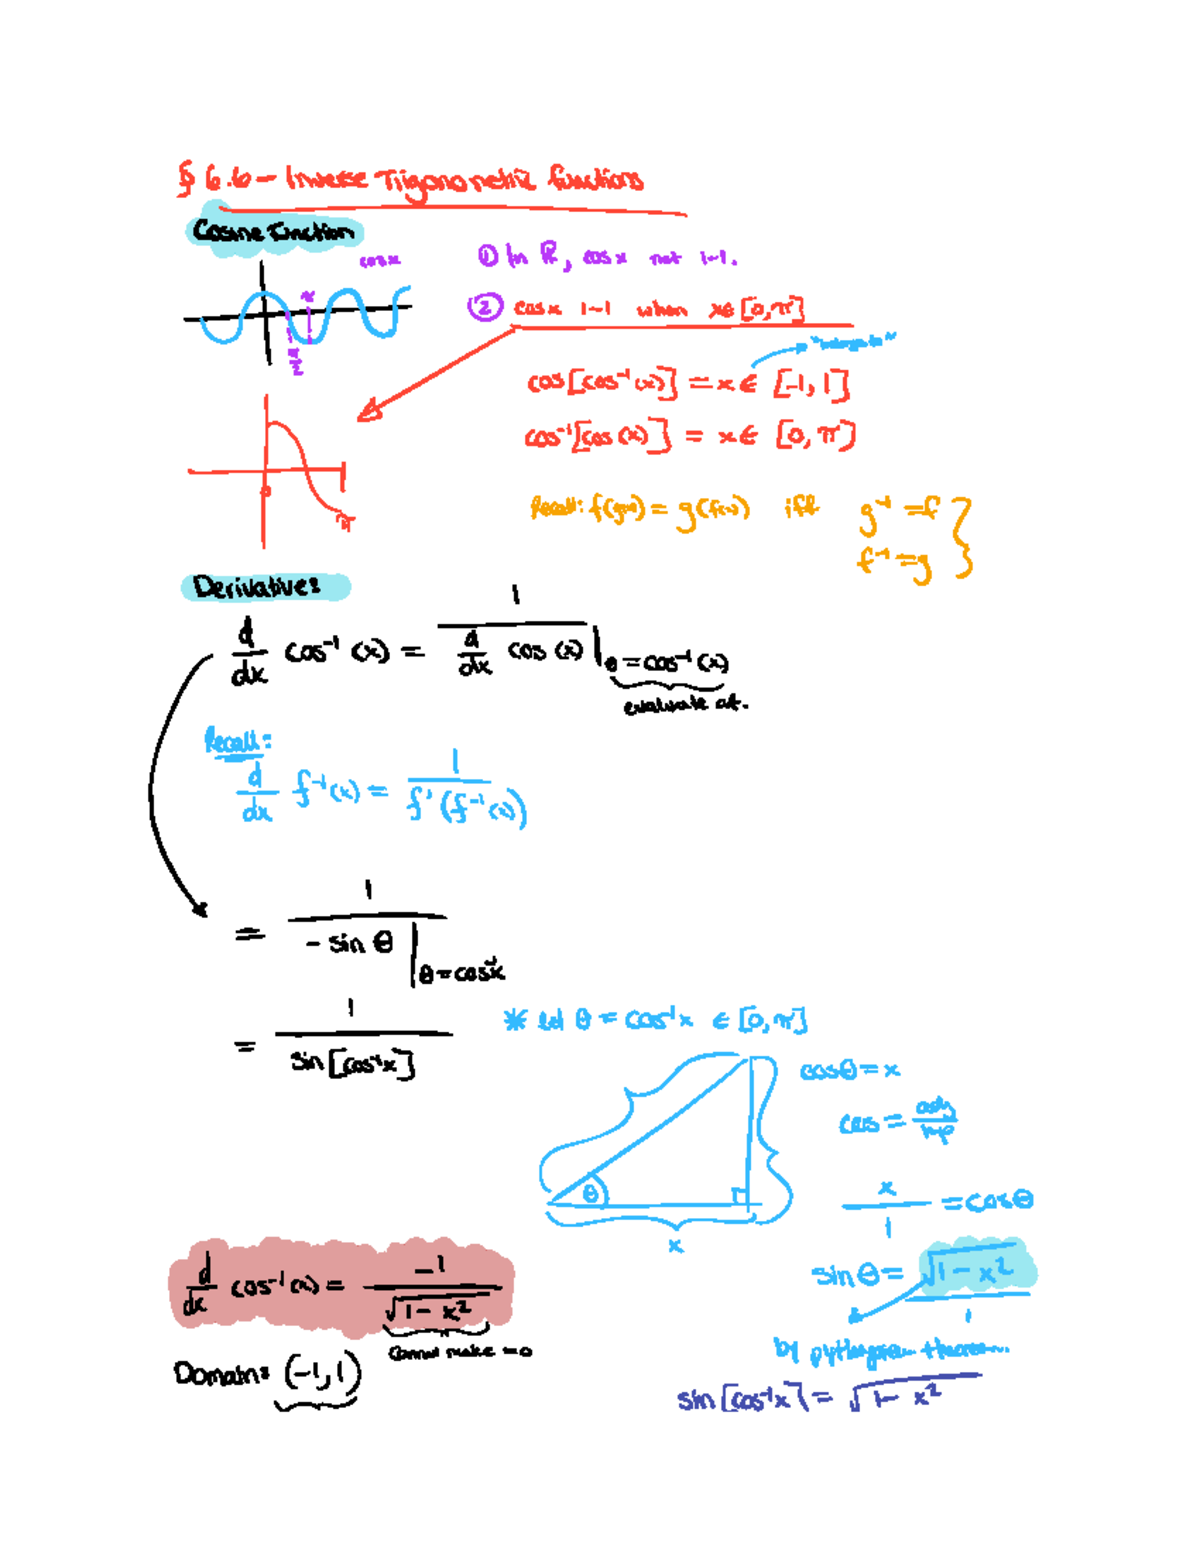 § 6.6 – Inverse Trigonometric functions
Cosine Function
cos x
π
π/2
① In ℝ, cos x not 1-1.
② cos x 1-1 when x∈ [0,π]
"belongs to"
cos[cos⁻¹(x)] = x ∈ [-1, 1]
cos⁻¹[cos(x)] = x ∈ [0, π]
0
π
Recall: f(g(x)) = g(f(x)) iff g⁻¹ = f }
f⁻¹ = g
Derivative:
d/dx cos⁻¹(x) = 1 / d/dx cos(x) | θ = cos⁻¹(x)
evaluate at.
Recall:
d/dx f⁻¹(x) = 1 / f'(f⁻¹(x))
= 1 / - sin θ | θ = cos⁻¹x
= 1 / sin[cos⁻¹x]
* let θ = cos⁻¹x ∈ [0, π]
cosθ = x
cos = adj/hyp
θ
x
x/1 = cosθ
sin θ = √(1 - x²) / 1
by pythagorean theorem.
sin[cos⁻¹x] = √(1 - x²)
d/dx cos⁻¹(x) = -1 / √(1 - x²)
cannot make = 0
Domain: (-1, 1)